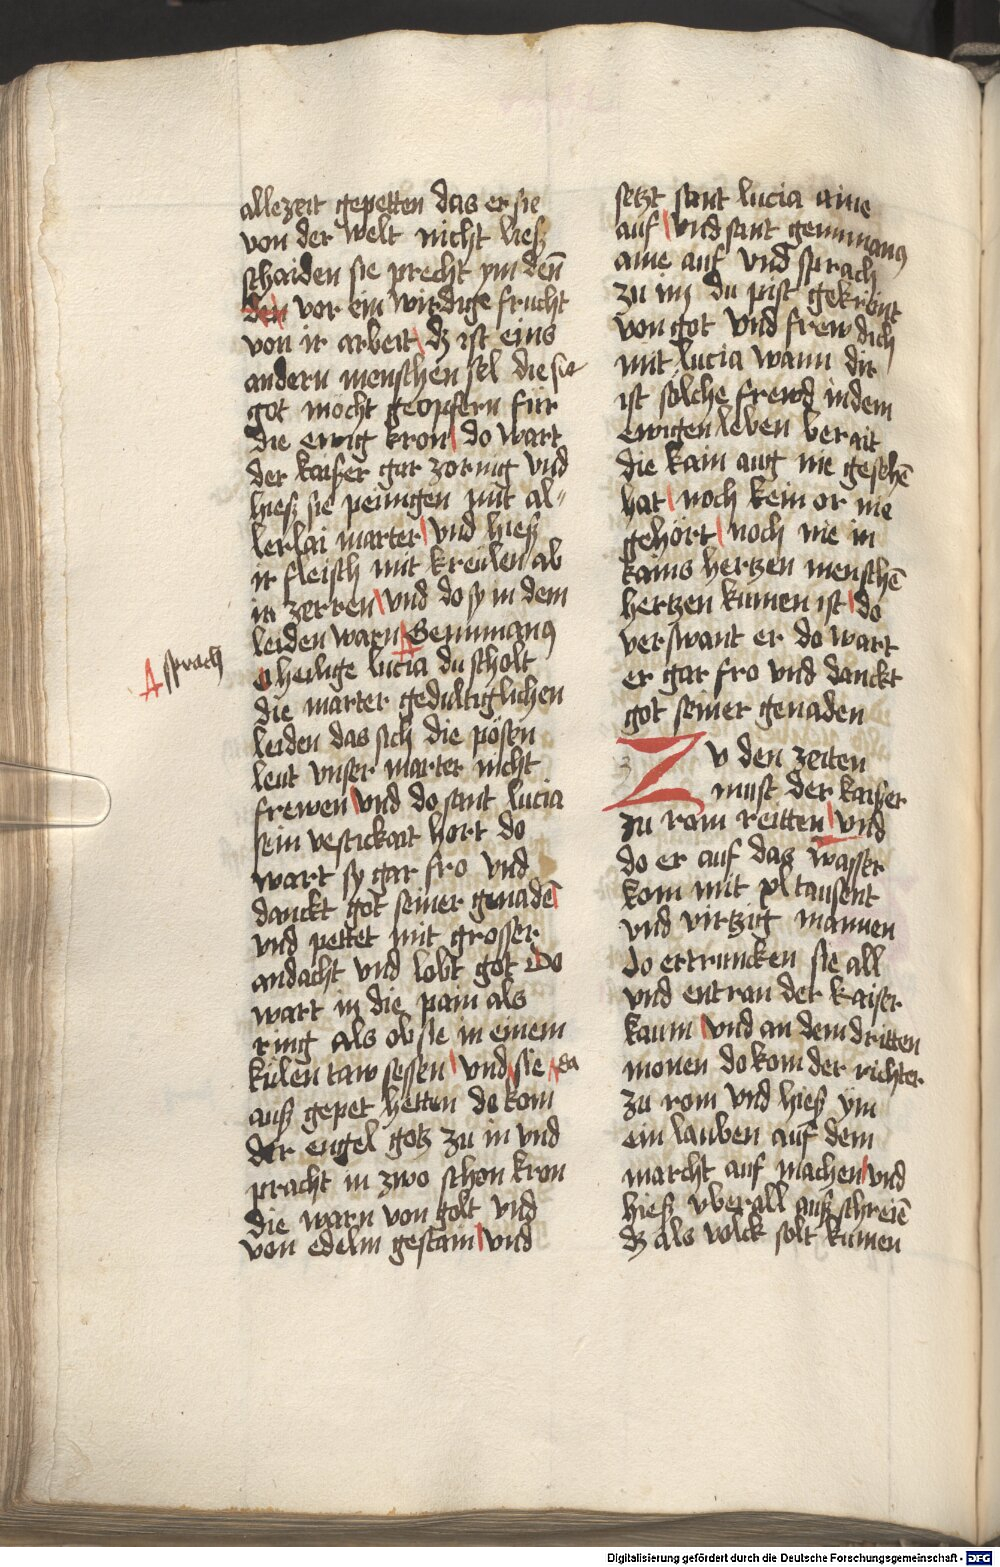 allezeit gepetten das er sie
von der welt nicht ließ
schaiden sie precht ym den̄
den vor ein wirdige frucht
von ir arbeit dz ist eins
andern menschen sel die sie
got mocht geopfern für
die ewig kron do wart
der kaiser gar zornig vnd
hieß sie peinigen mit al⸗
lerlai marter vnd hieß
ir fleisch mit kreülen ab
in zerren vnd do sy in dem
leiden warn Gemmianus
sprach
o heilige lucia du scholt
die marter gedultiglichen
leiden das sich die pösen
leut vnser marter nicht
frewen vnd do sant lucia
sein vestickait hort do
wart sy gar fro vnd
danckt got seiner genadē
vnd pettet mit grosser
andacht vnd lobt got Do
wart in die pain als
ring als ob sie in einem
külen taw sessen vnd sie da
auß gepet hetten do kom
der engel gotz zu in vnd
pracht in zwo schon kron
die warn von golt vnd
von edelm gestain vnd
setzt sant lucia aine
auf vnd sant gemmianus
aine auf vnd sprach
zu im du pist gekrönt
von got vnd frew dich
mit lucia wann dir
ist solche frewd in dem
ewigen leben berait
die kain aug nie gesehē
hat noch kein or nie
gehört noch nie in
kains hertzen menschē
hertzen kumen ist do
verswant er do wart
er gar fro vnd danckt
got seiner genaden
Zv den zeiten
must der kaiser
zu rom reitten vnd
do er auf das wasser
kom mit xl tausent
vnd virtzig mannen
do ertruncken sie all
vnd entran der kaiser
kaum vnd an dem dritten
monen do kom der richter
zu rom vnd hieß ym
ein lauben auf dem
marcht auf machen vnd
hieß vberall auß schreiē
dz als volck solt kumen
Digitalisierung gefördert durch die Deutsche Forschungsgemeinschaft - DFG